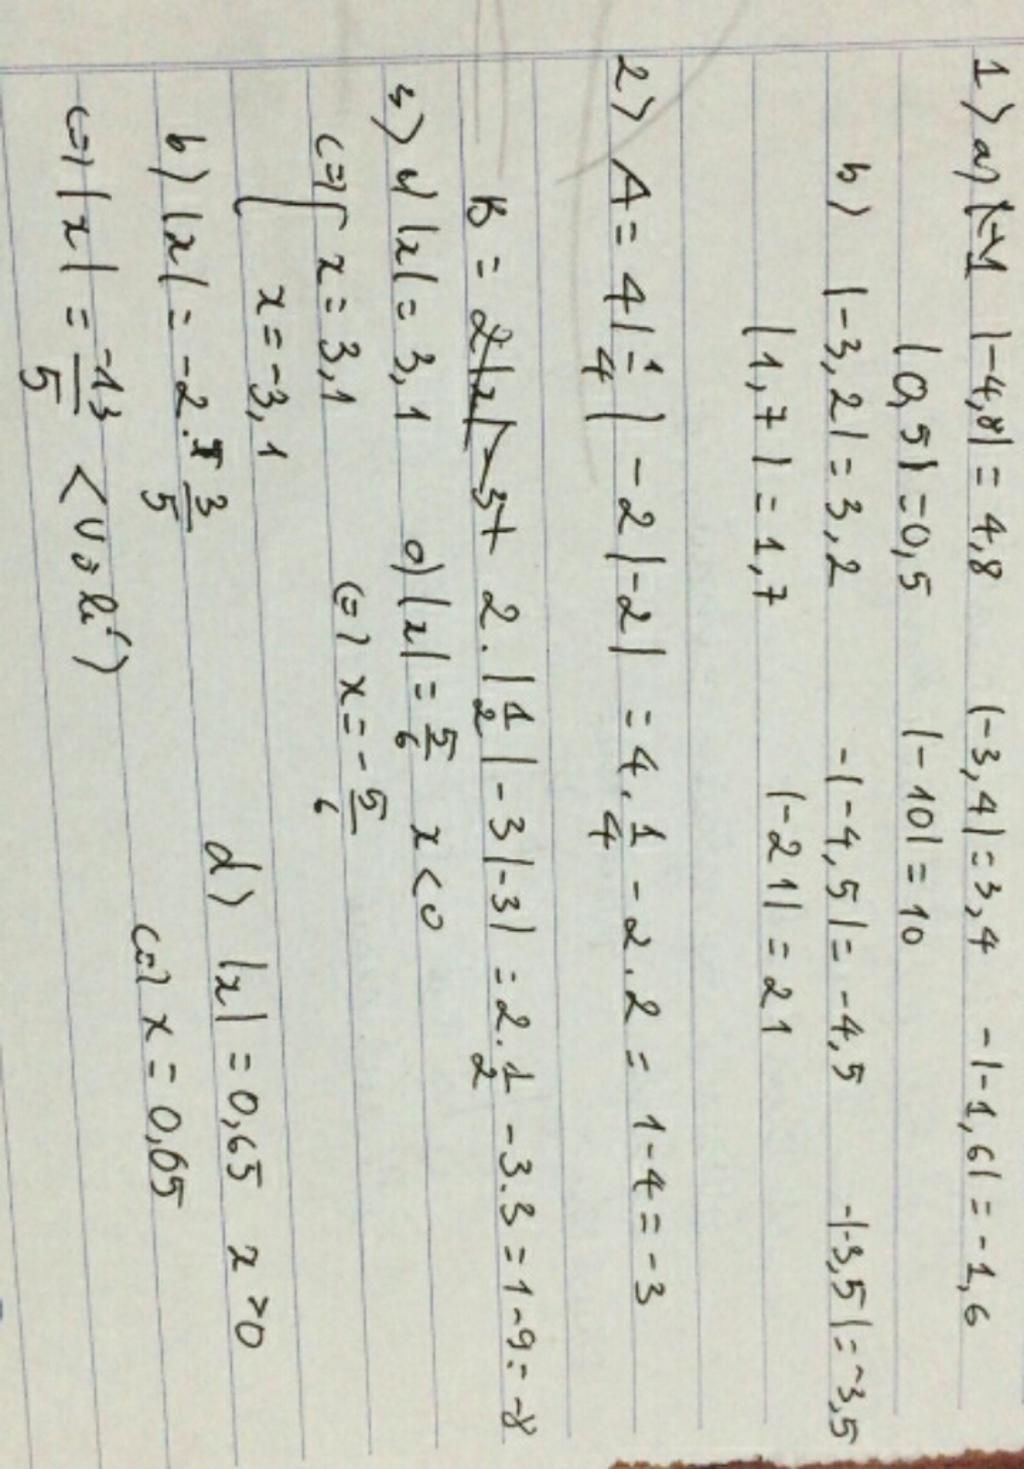 1) a) |-4,8| = 4,8   |-3,4| = 3,4   -|-1,6| = -1,6
|0,5| = 0,5   |-10| = 10
b) |-3,2| = 3,2   -|-4,5| = -4,5   -|-3,5| = -3,5
|1,7| = 1,7   |-21| = 21
2) A = 4|1/4| - 2|-2| = 4.1/4 - 2.2 = 1-4 = -3
B = 2.|1/2| - 3|-3| = 2.1/2 - 3.3 = 1-9 = -8
3) a) |x| = 3,1   c) |x| = 5/6   x < 0
<=> [ x = 3,1   <=> x = -5/6
x = -3,1
b) |x| = -2 3/5   d) |x| = 0,65   x > 0
<=> |x| = -13/5 < (vô lí)   <=> x = 0,65